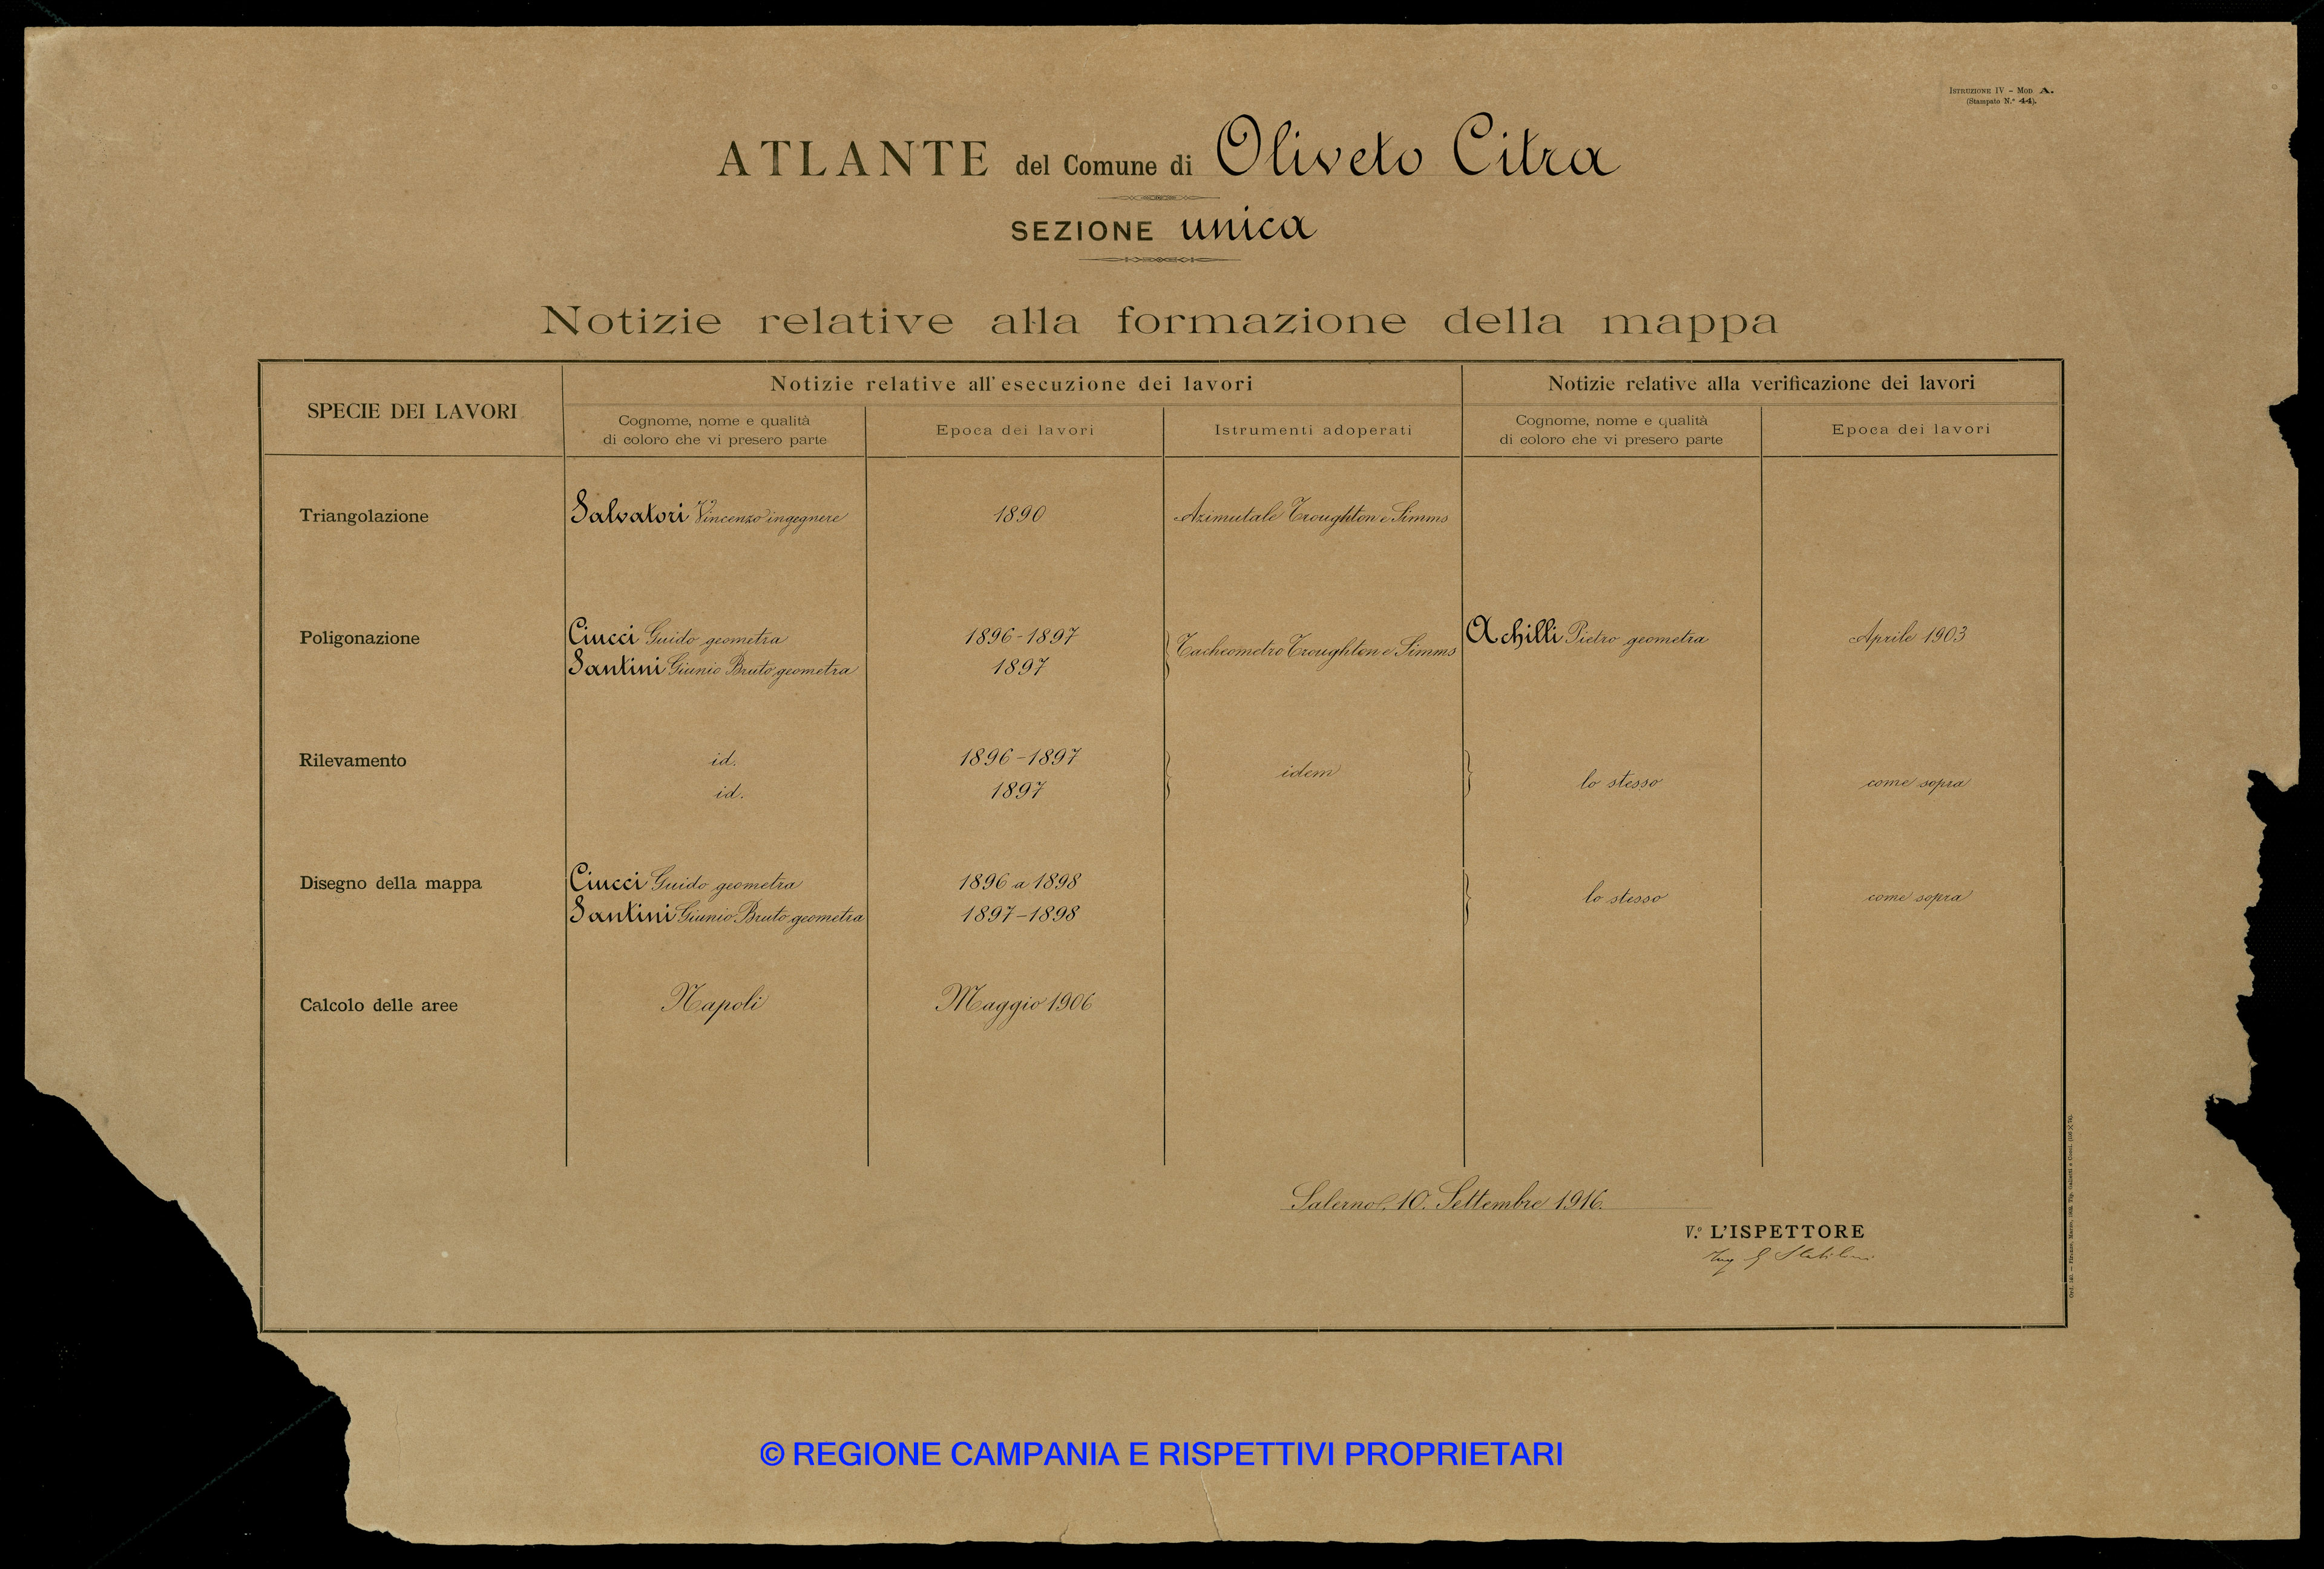 ISTRUZIONE IV - MOD A.
(Stampato N.° 44).
ATLANTE del Comune di Oliveto Citra
SEZIONE unica
Notizie relative alla formazione della mappa
SPECIE DEI LAVORI
Notizie relative all'esecuzione dei lavori
Notizie relative alla verificazione dei lavori
Cognome, nome e qualità
di coloro che vi presero parte
Epoca dei lavori
Istrumenti adoperati
Cognome, nome e qualità
di coloro che vi presero parte
Epoca dei lavori
Triangolazione
Salvatori Vincenzo ingegnere
1890
Azimutale Troughton e Simms
Poligonazione
Ciucci Guido geometra
1896-1897
Santini Giunio Bruto geometra
1897
Tacheometro Troughton e Simms
Achilli Pietro geometra
Aprile 1903
Rilevamento
id.
1896-1897
id.
1897
idem
lo stesso
come sopra
Disegno della mappa
Ciucci Guido geometra
1896 a 1898
Santini Giunio Bruto geometra
1897-1898
lo stesso
come sopra
Calcolo delle aree
Napoli
Maggio 1906
Salerno, 10. Settembre 1916.
V.° L'ISPETTORE
Ing G
© REGIONE CAMPANIA E RISPETTIVI PROPRIETARI